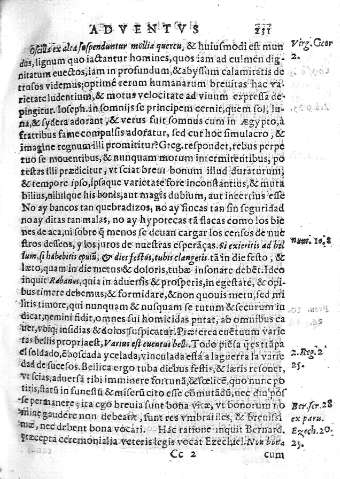 ADVENTVS 251
Oscilla ex alta suspenduntur mollia quercu, & huiusmodi est mun
dus, lignum quo iactantur homines, quos iam ad culmen dig-
nitatum euectos, iam in profundum, & abyssum calamitatis de
trusos videmus; optimè rerum humanarum breuitas hac va-
rietate ludentium, & motus velocitate ad viuum expressa de-
pingitur. Ioseph. in somnijs se principem cernit, quem sol, lu-
na, & sydera adorant, & verus fuit somnus cum in Ægypto, à
fratribus fame compulsis adoratur, sed cur hoc simulacro, &
imagine regnum illi promittitur? Greg. respondet, rebus perpe
tuo se mouentibus, & nunquam motum intermittentibus, po
testas illi prædicitur, vt sciat breui bonum illud duraturum,
& tempore ipso, ipsaque varietate fore inconstantius, & muta
bilius, nilque his bonis, aut magis dubium, aut incertius esse
No ay bancos tan quebradizos, no ay fincas tan sin seguridad
no ay ditas tan malas, no ay hypotecas tã flacas como los bie
nes de aca, ni sobre q̃ menos se deuan cargar los censos de nue
stros desseos, y los juros de nuestras esperãças. Si exieritis ad bel
lum, si habebitis epulũ, & dies festus, tuba clangetis tã in die festo, &
læto, quam in die metus & doloris, tubæ insonare debẽt. Ideo
inquit Rabanus, quia in aduersis & prosperis, in egestate, & opi
bus timere debemus, & formidare, & non quouis metu, sed mi
stis timore, qui nunquam & nusquam se tutum & securum in
dicat, nemini fidit, omnes sui homicidas putat, ab omnibus ca
uet, vbiq; insidias & dolos suspicatur. Præterea euentuum varie
tas bellis propria est, Varius est euentus belli. Todo piẽsa q̃ està para
el soldado, ẽboscada y celada, vinculada està a la guerra la varie
dad de sucesos. Bellica ergo tuba diebus festis, & lætis resonet,
vt scias, aduersã tibi imminere fortunã, & fœlicẽ, quo nunc po
tiris, statũ in funestũ & miserũ cito esse cõmutãdũ, nec diu pos
se permanere, ita ergo breuia sunt bona vitæ, vt bonorum no
mine gaudere non debeant, sunt res vmbratiles, & breuissi
mæ, nec debent bona vocari. Hac ratione inquit Bernard.
Præcepta ceremonialia veteris legis vocat Ezechiel Non bona
Cc 2 cum
Virg. Geor
2.
Num. 10. 8
2. Reg. 2
25.
Ber. ser. 28
ex paru.
Ezech. 20
25.